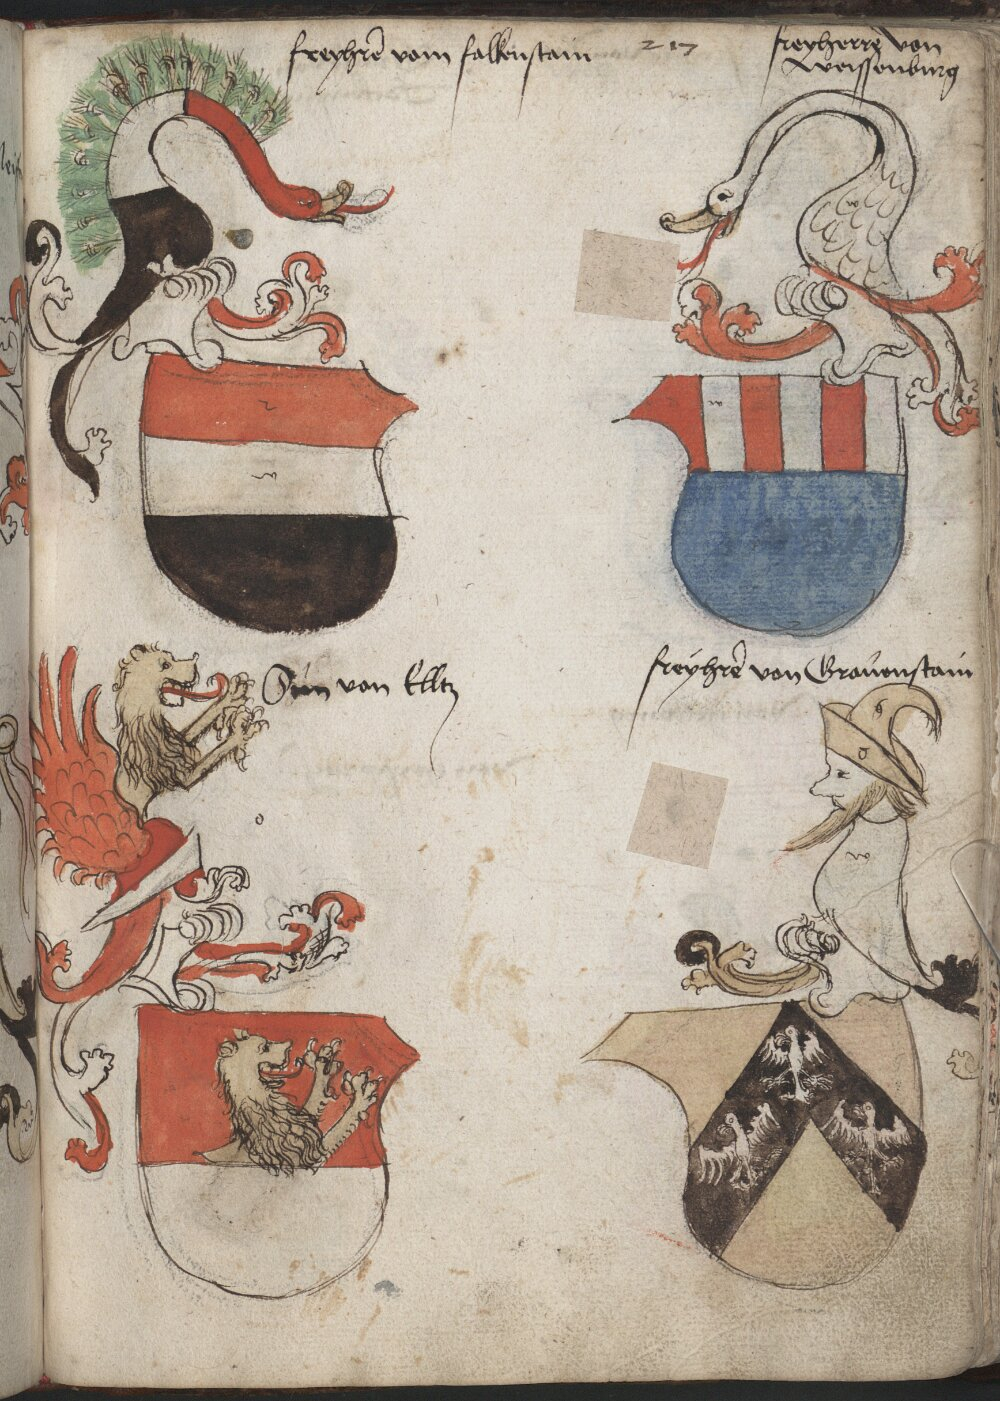 freyhrē vom falkenstain
217
freyherre von
Weissenburg
w
w
von Elltz
freyhrē von Gravenstain
g
w